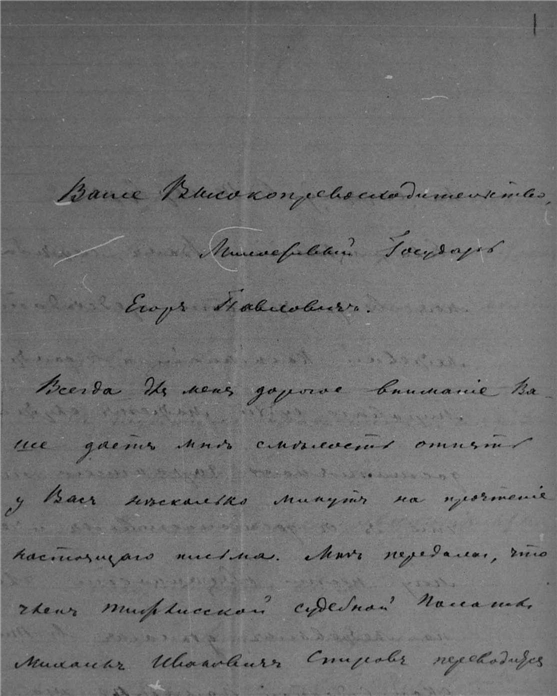 1
Ваше Высокопревосходительство,
Милостивый Государь
Егоръ Павловичъ.
Всегда для меня дорогое вниманіе Ва-
ше даетъ мнѣ смѣлость отнять
у Васъ нѣсколько минутъ на прочтеніе
настоящаго письма. Мнѣ передали, что
членъ Тифлисской судебной Палаты
Михаилъ Ивановичъ Спировъ переводится